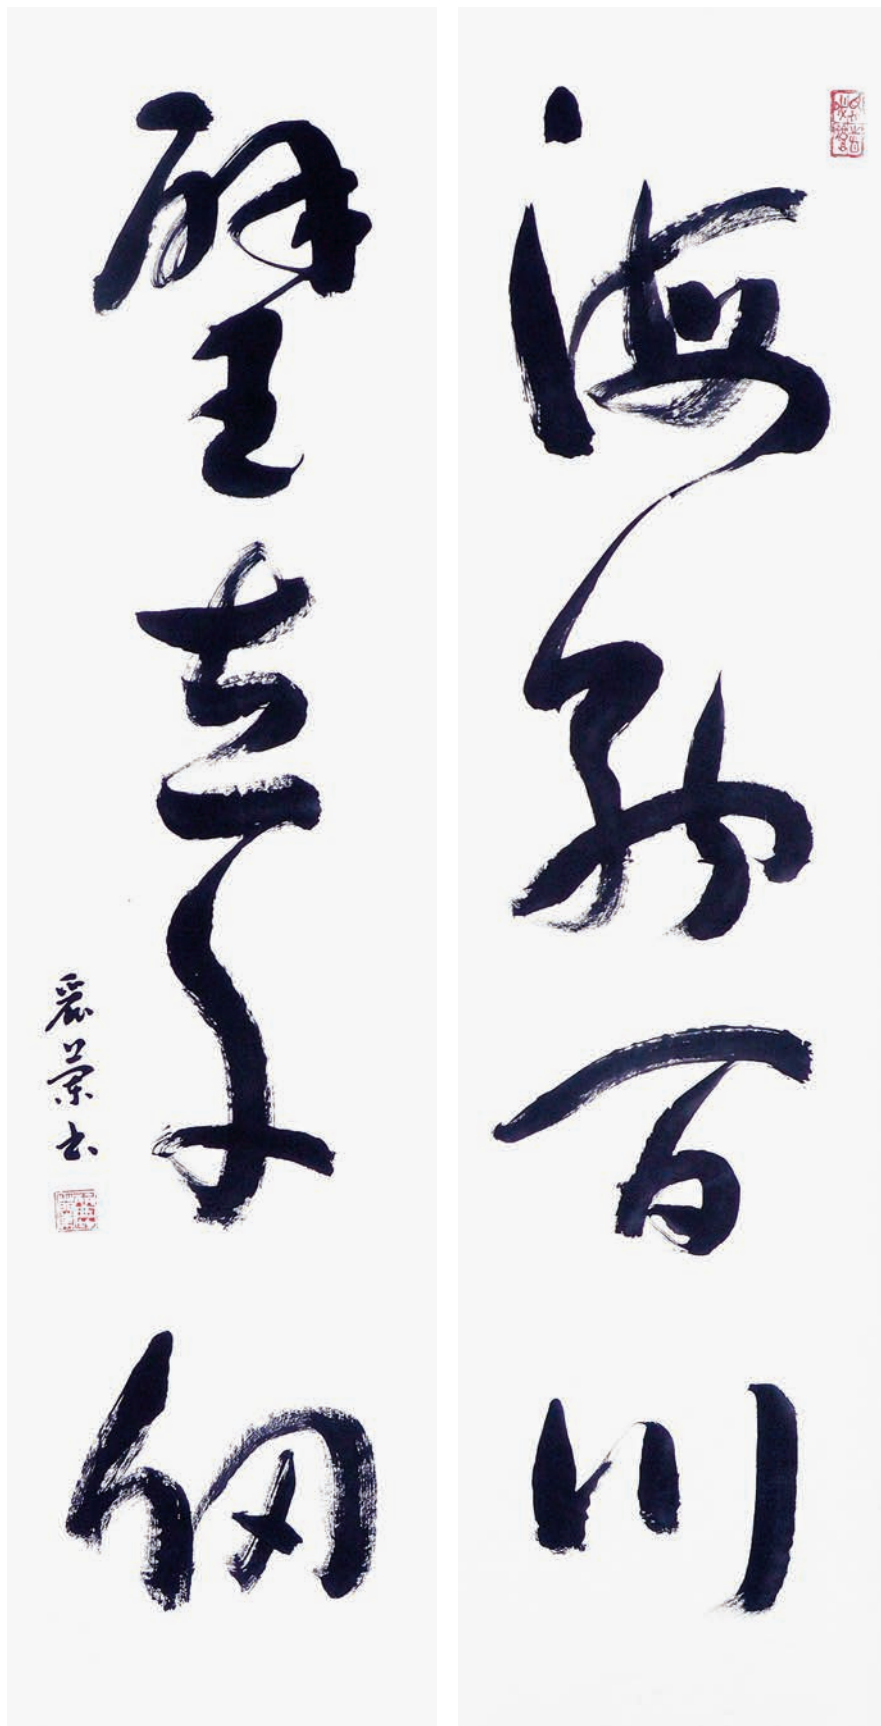 海納百川
壁立千仞
麗蘭書